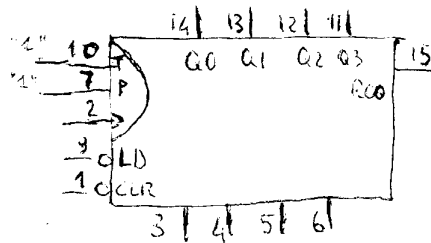 14 13 12 11
"1" 10 T Q0 Q1 Q2 Q3 15
"1" 7 P RCO
2
9 LD
1 CLR
3 4 5 6